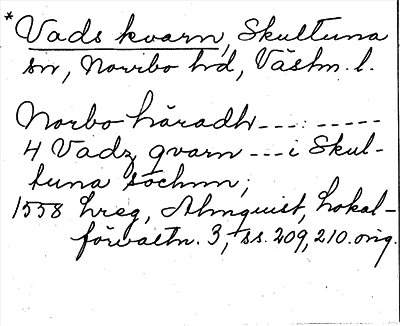 *Vads kvarn, Skultuna
sn, Norrbo hd, Västm. l.
Norbo häradh ---:-----
4 Vadz qvarn --- i Skul-
tuna sochnn;
1558 hreg, Almquist, Lokal-
förvaltn. 3, ss. 209, 210. orig.